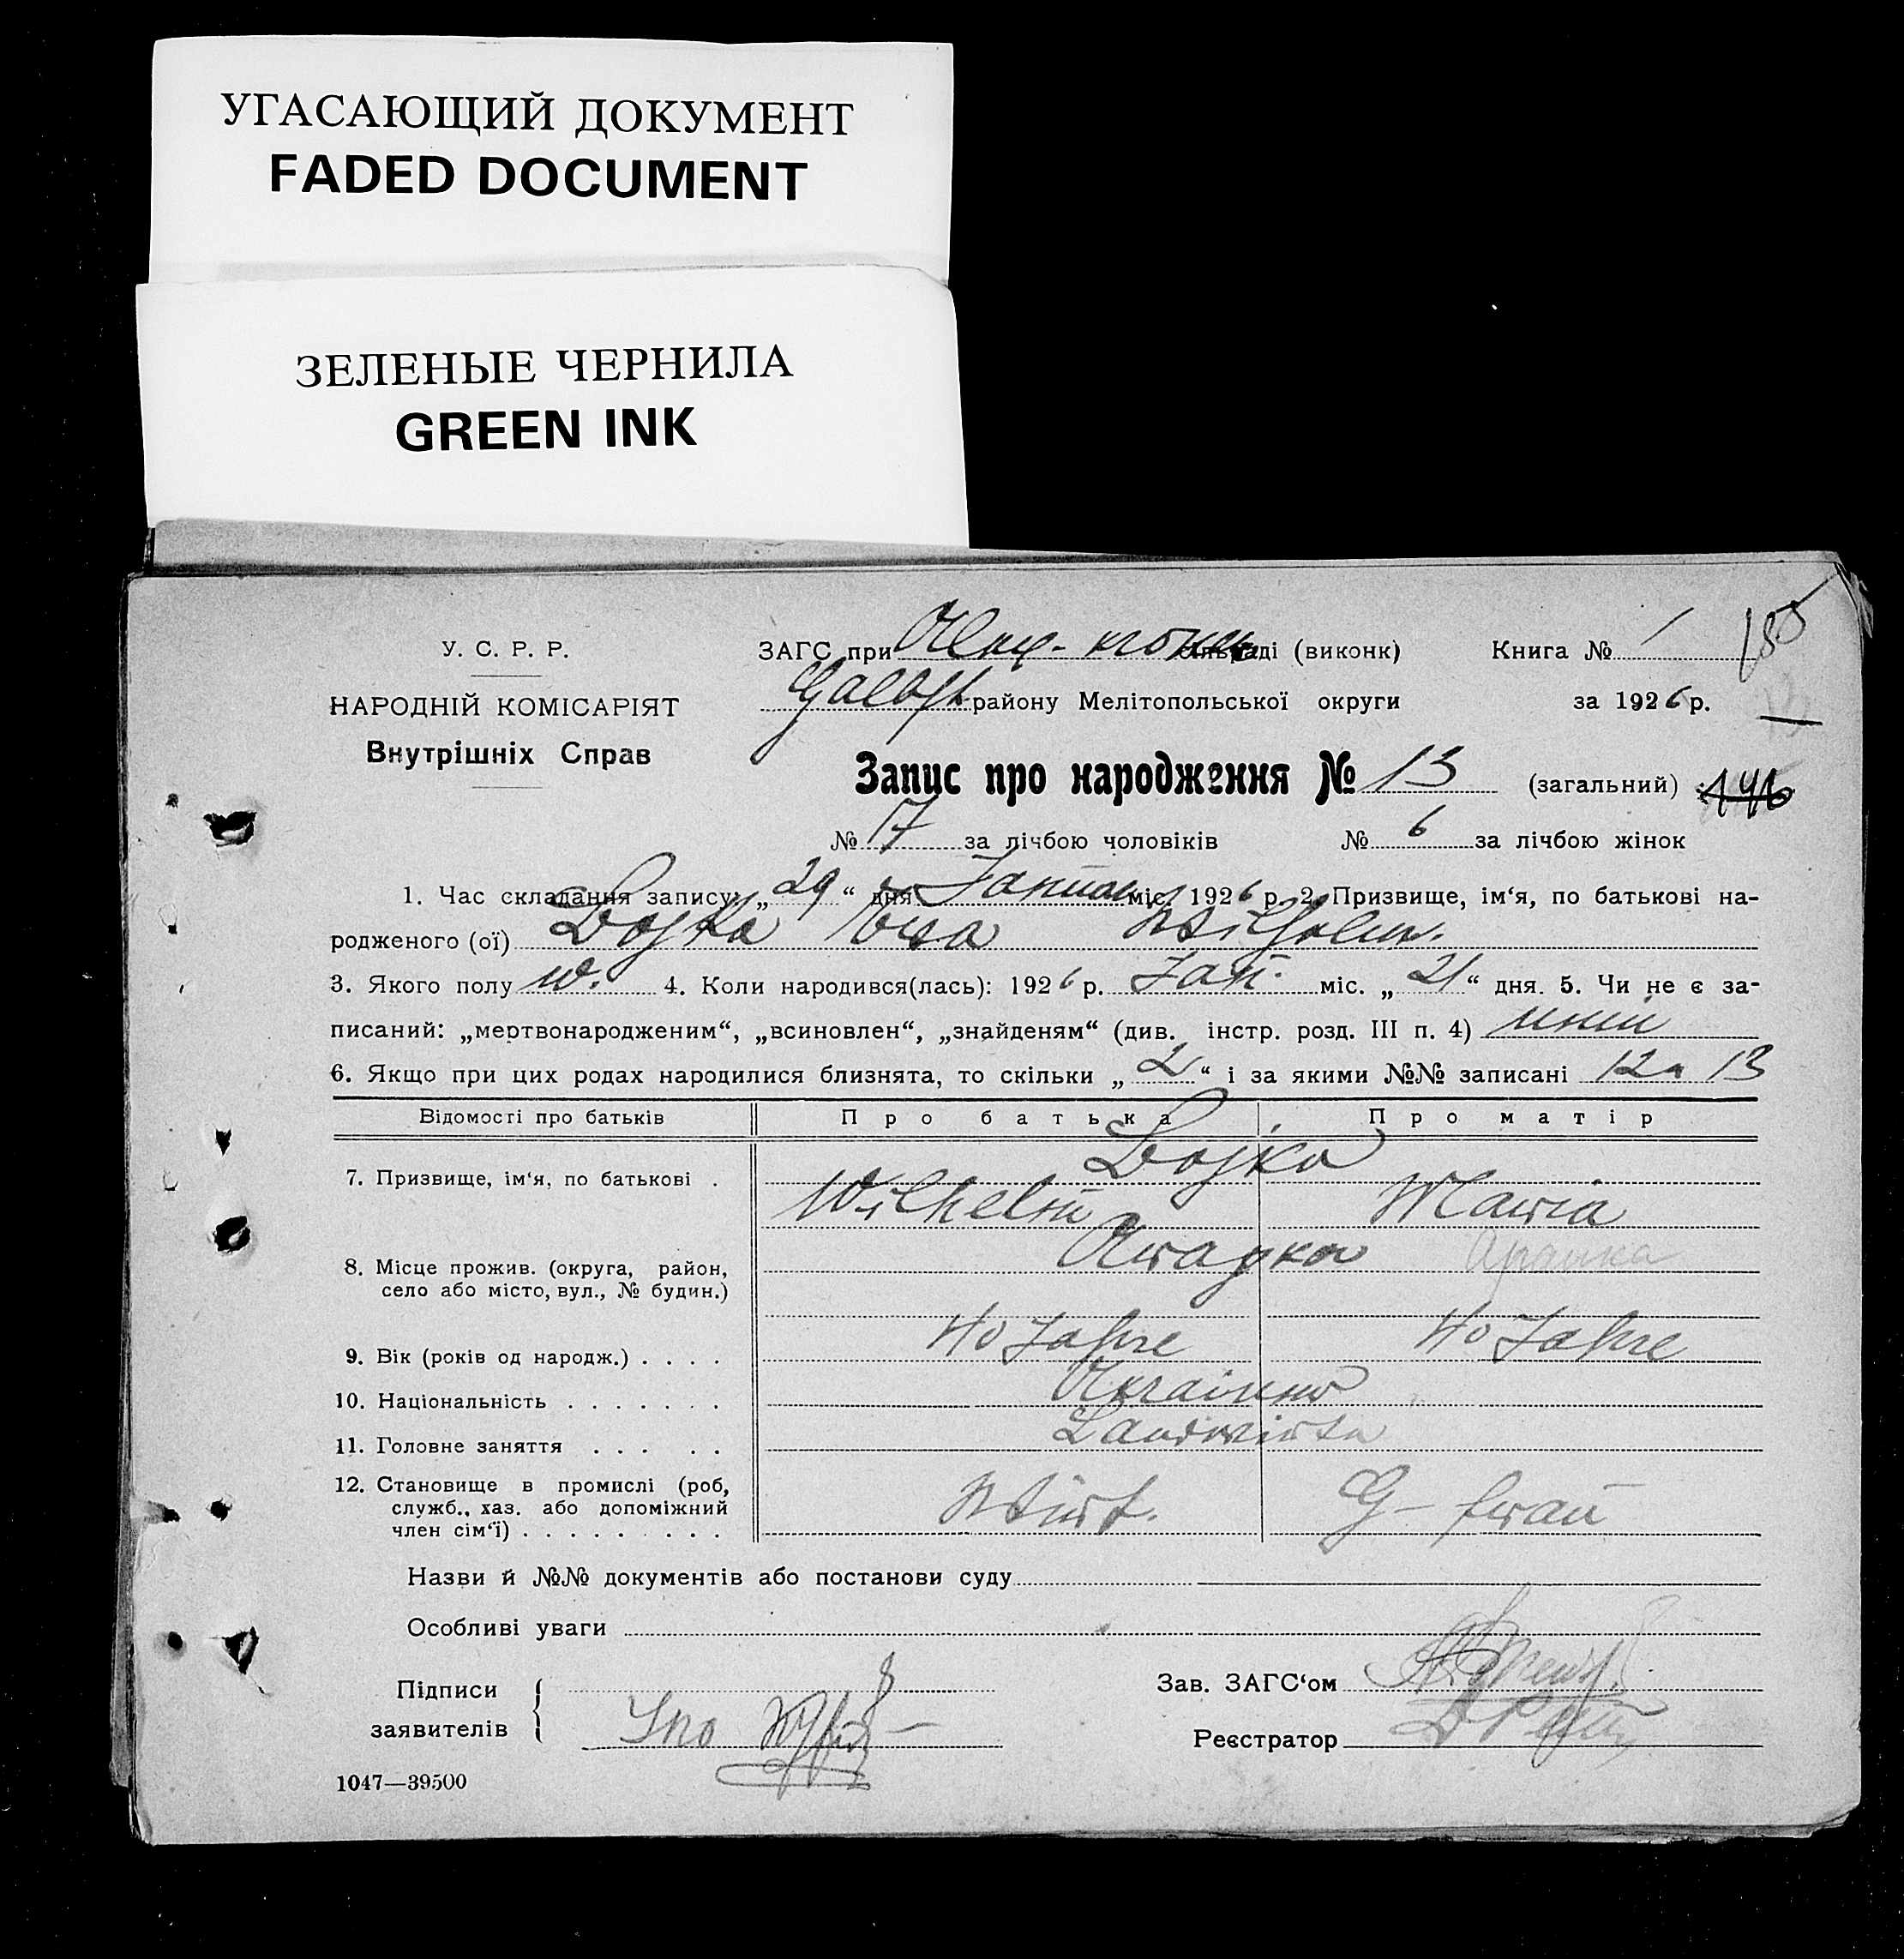 УГАСАЮЩИЙ ДОКУМЕНТ
FADED DOCUMENT
ЗЕЛЕНЫЕ ЧЕРНИЛА
GREEN INK
У. С. Р. Р.
НАРОДНІЙ КОМІСАРІЯТ
Внутрішніх Справ
ЗАГС при раді (виконк)
району Мелітопольської округи
Книга № 1
за 1926 р.
Запис про народження № 13 (загальний) 146
№ 17 за лічбою чоловіків № 6 за лічбою жінок
1. Час складання запису: „29“ дня Januar міс. 1926 р. 2. Призвище, ім‘я, по батькові на-
родженого (ої) Bojko Ewa Wilhelm.
3. Якого полу w. 4. Коли народився(лась): 1926 р. Jan. міс. „21“ дня. 5. Чи не є за-
писаний: „мертвонародженим“, „всиновлен“, „знайденям“ (див. інстр. розд. III п. 4)
6. Якщо при цих родах народилися близнята, то скільки „2“ і за якими №№ записані 12 a 13
Відомості про батьків Про батька Про матір
7. Призвище, ім‘я, по батькові . Bojko
Wilhelm Maria
8. Місце прожив. (округа, район,
село або місто, вул., № будин.)
9. Вік (років од народж.) . . . . 40 Jahre 40 Jahre
10. Національність . . . . . . . Ukrainer
11. Головне заняття . . . . . Landwirte
12. Становище в промислі (роб,
служб., хаз. або допоміжний
член сім‘ї) . . . . . . . . . Wirt. G- frau
Назви й №№ документів або постанови суду
Особливі уваги
Підписи
заявителів
Зав. ЗАГС‘ом
Реєстратор
1047—39500